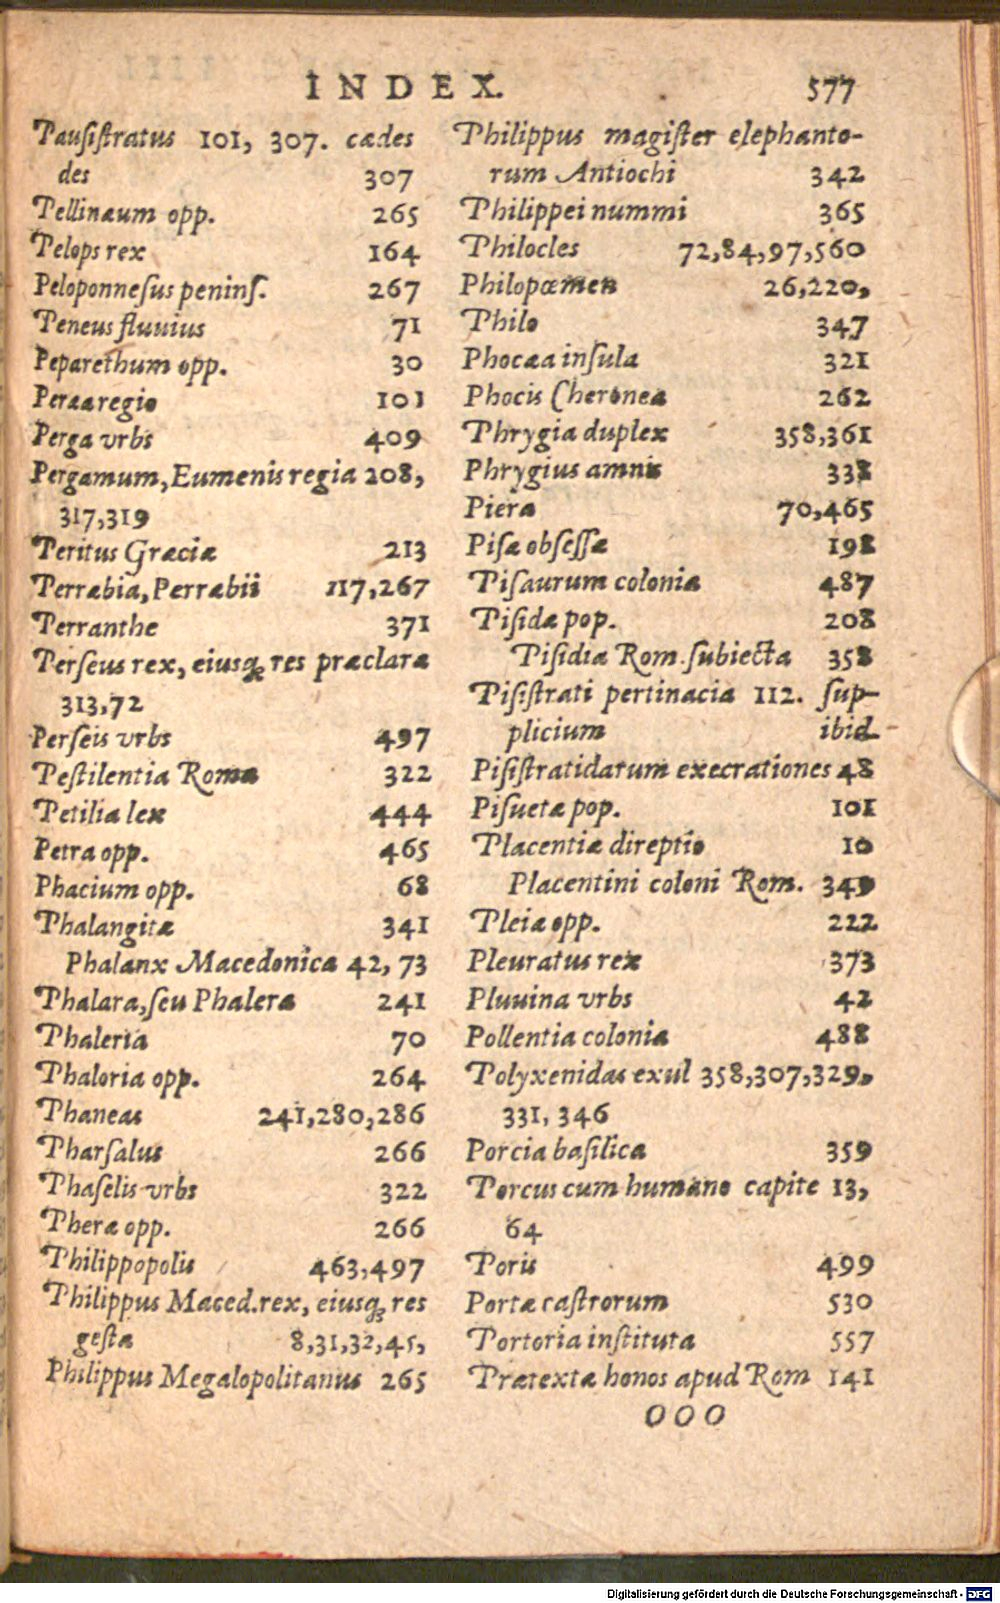 INDEX. 577
Pausistratus 101, 307. cædes
des 307
Pellinæum opp. 265
Pelops rex 164
Peloponnesus penins. 267
Peneus fluuius 71
Peparethum opp. 30
Peræa regio 101
Perga vrbs 409
Pergamum, Eumenis regia 208,
317,319
Peritus Græciæ 213
Perræbia, Perræbii 117,267
Perranthe 371
Perseus rex, eiusq; res præclaræ
313,72
Perseis vrbs 497
Pestilentia Romæ 322
Petilia lex 444
Petra opp. 465
Phacium opp. 68
Phalangitæ 341
Phalanx Macedonica 42, 73
Phalara, seu Phalera 241
Phaleria 70
Phaloria opp. 264
Phaneas 241,280,286
Pharsalus 266
Phaselis vrbs 322
Pheræ opp. 266
Philippopolis 463,497
Philippus Maced. rex, eiusq; res
gestæ 8,31,32,45,
Philippus Megalopolitanus 265
Philippus magister elephanto-
rum Antiochi 342
Philippei nummi 365
Philocles 72,84,97,560
Philopœmen 26,220,
Philo 347
Phocæa insula 321
Phocis Cheronea 262
Phrygia duplex 358,361
Phrygius amnis 338
Piera 70,465
Pisæ obsessæ 198
Pisaurum colonia 487
Pisidæ pop. 208
Pisidia Rom. subiecta 358
Pisistrati pertinacia 112. sup-
plicium ibid.
Pisistratidarum execrationes 48
Pisuetæ pop. 101
Placentiæ direptio 10
Placentini coloni Rom. 349
Pleiæ opp. 222
Pleuratus rex 373
Pluuina vrbs 42
Pollentia colonia 488
Polyxenidas exul 358,307,329,
331, 346
Porcia basilica 359
Porcus cum humano capite 13,
64
Poris 499
Portæ castrorum 530
Portoria instituta 557
Prætextæ honos apud Rom 141
OOO
Digitalisierung gefördert durch die Deutsche Forschungsgemeinschaft - DFG